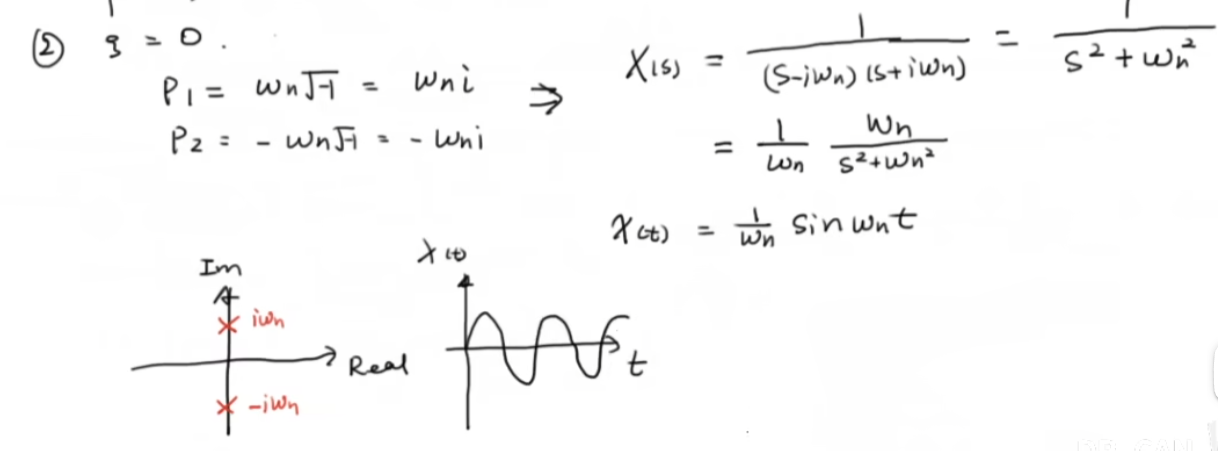 ② ξ = 0.
P₁ = ωn√-1 = ωni ⇒
P₂ = - ωn√-1 = - ωni
X(s) = 1/((s-iωn)(s+iωn)) = 1/(s²+ωn²)
= 1/ωn ωn/(s²+ωn²)
x(t) = 1/ωn sin ωnt
Im
iωn
Real
-iωn
x(t)
t